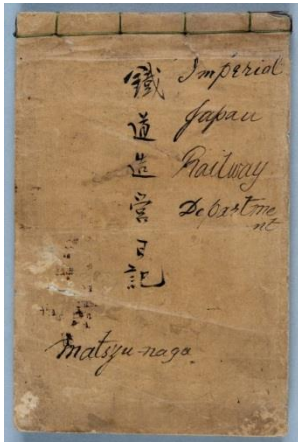 鐵道造營日記
Imperial
Japan
Railway
Departme
nt
Matsyu-naga